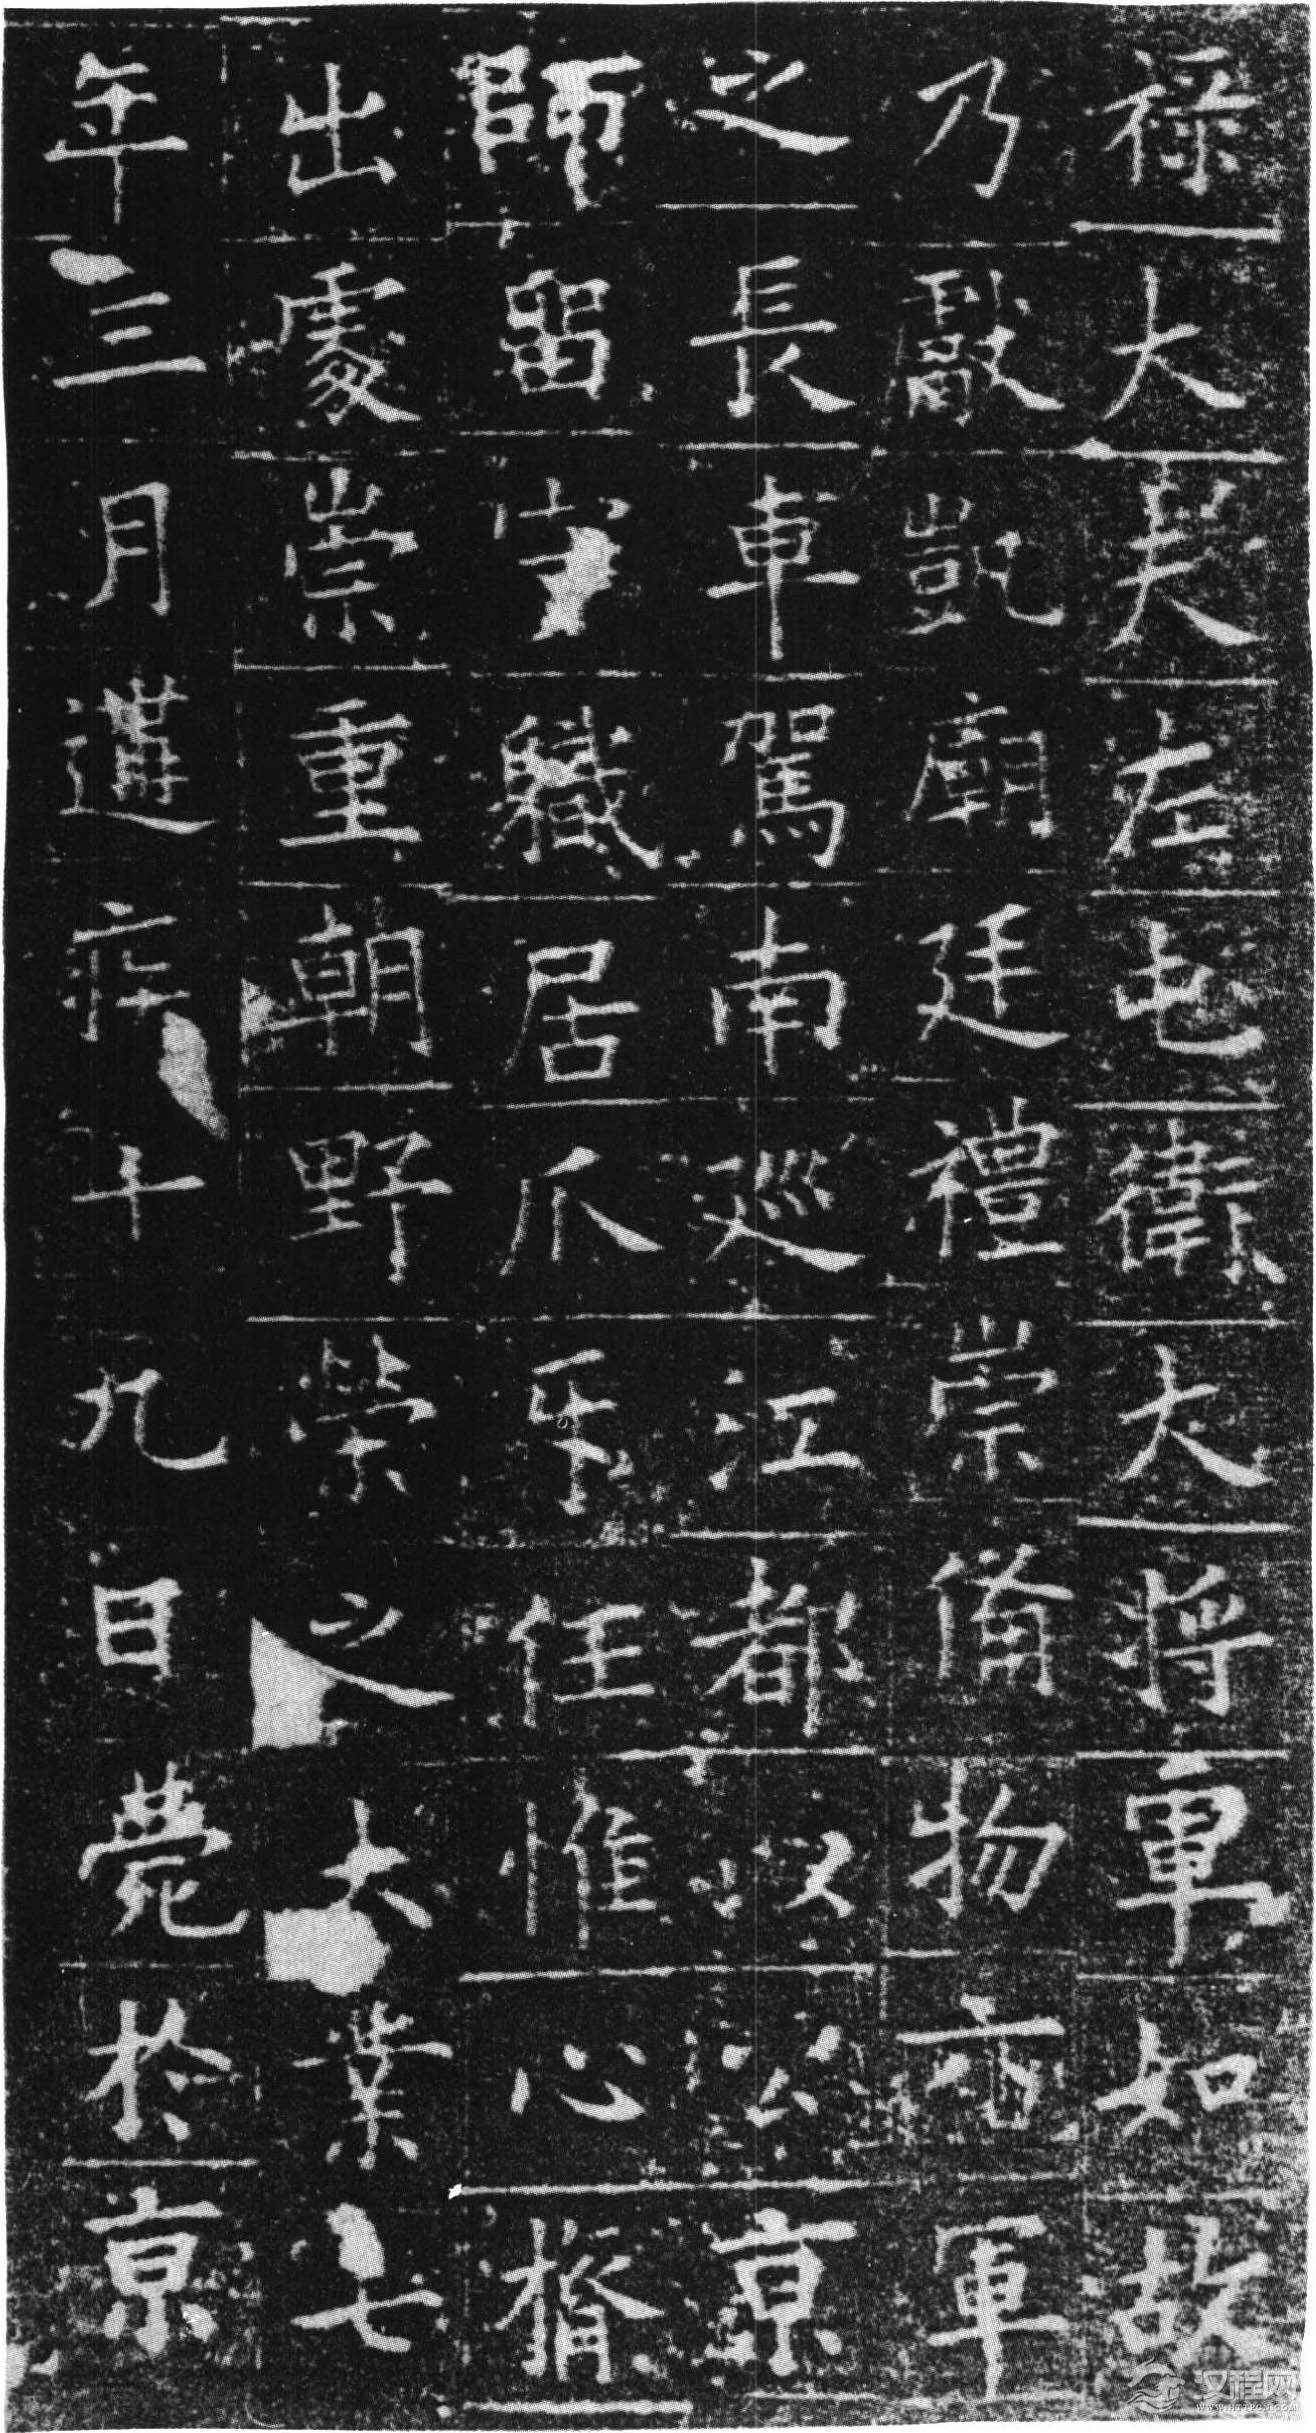 禄大夫左屯衛大將軍如故
乃獻凱廟廷禮崇備物軍
之長車駕南巡江都以公京
師留守職居爪牙任惟心膂
出處崇重朝野榮之大業七
年三月遘疾十九日薨於京
汉程网
WWW.HTTPCN.COM